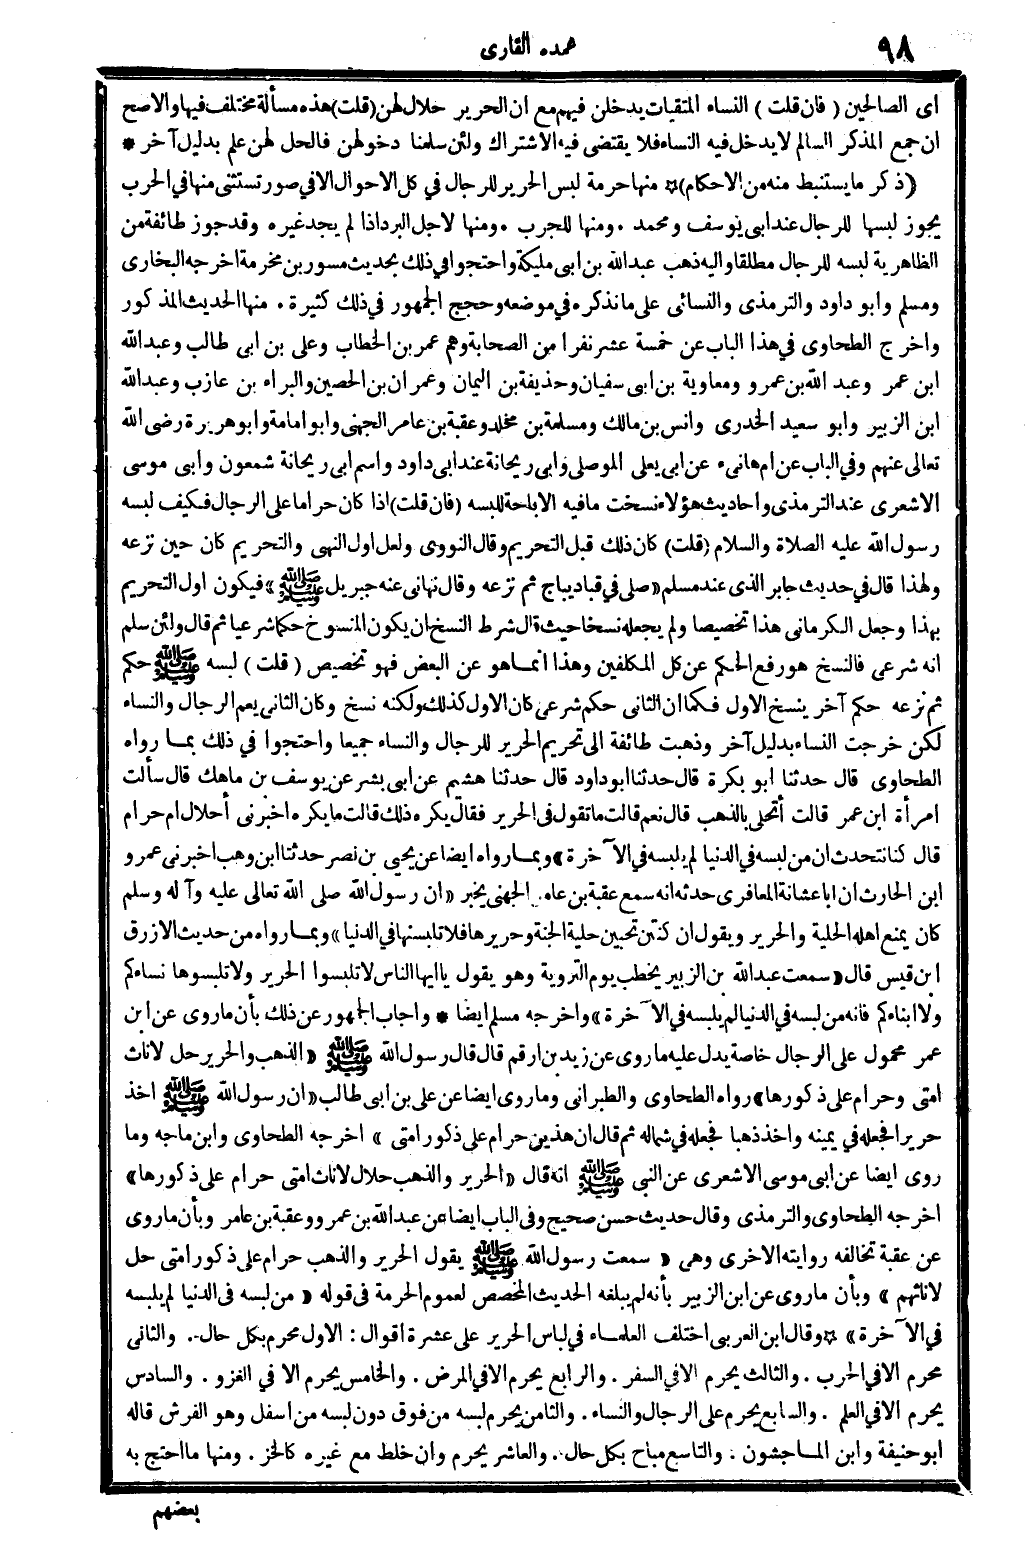 ٩٨
عمده القارى
اى الصالحين (فان قلت) النساء المتقيات يدخلن فيهم مع ان الحرير حلال لهن (قلت) هذه مسألة مختلف فيها والاصح
ان جمع المذكر السالم لا يدخل فيه النساء فلا يقتضى فيه الاشتراك ولئن سلمنا دخولهن فالحل لهن علم بدليل آخر *
(ذكر ما يستنبط منه من الاحكام) ☆ منها حرمة لبس الحرير للرجال في كل الاحوال الا في صور تستثنى منها في الحرب
يجوز لبسها للرجال عند ابى يوسف ومحمد . ومنها للجرب . ومنها لاجل البرد اذا لم يجد غيره وقد جوز طائفة من
الظاهرية لبسه للرجال مطلقا واليه ذهب عبد الله بن ابى مليكة واحتجوا في ذلك بحديث مسور بن مخرمة اخرجه البخارى
ومسلم وابو داود والترمذى والنسائى على ما نذكره في موضعه وحجج الجمهور في ذلك كثيرة . منها الحديث المذكور
واخرج الطحاوى في هذا الباب عن خمسة عشر نفرا من الصحابة وهم عمر بن الخطاب وعلى بن ابى طالب وعبد الله
ابن عمر وعبد الله بن عمرو ومعاوية بن ابى سفيان وحذيفة بن اليمان وعمران بن الحصين والبراء بن عازب وعبد الله
ابن الزبير وابو سعيد الخدرى وانس بن مالك ومسلمة بن مخلد وعقبة بن عامر الجهنى وابو امامة وابو هريرة رضى الله
تعالى عنهم وفي الباب عن ام هانىء عن ابى يعلى الموصلى وابى ريحانة عند ابى داود واسم ابى ريحانة شمعون وابى موسى
الاشعرى عند الترمذى واحاديث هؤلاء نسخت مافيه الاباحة للبسه (فان قلت) اذا كان حراما على الرجال فكيف لبسه
رسول الله عليه الصلاة والسلام (قلت) كان ذلك قبل التحريم وقال النووى ولعل اول النهى والتحريم كان حين نزعه
ولهذا قال في حديث جابر الذى عند مسلم «صلى في قبا ديباج ثم نزعه وقال نهانى عنه جبريل ﷺ» فيكون اول التحريم
بهذا وجعل الكرمانى هذا تخصيصا ولم يجعله نسخا حيث قال شرط النسخ ان يكون المنسوخ حكما شرعيا ثم قال ولئن سلم
انه شرعى فالنسخ هو رفع الحكم عن كل المكلفين وهذا انما هو عن البعض فهو تخصيص (قلت) لبسه ﷺ حكم
ثم نزعه حكم آخر ينسخ الاول فكما ان الثانى حكم شرعى كان الاول كذلك ولكنه نسخ وكان الثانى يعم الرجال والنساء
لكن خرجت النساء بدليل آخر وذهبت طائفة الى تحريم الحرير للرجال والنساء جميعا واحتجوا في ذلك بما رواه
الطحاوى قال حدثنا ابو بكرة قال حدثنا ابو داود قال حدثنا هشيم عن ابى بشر عن يوسف بن ماهك قال سألت
امرأة ابن عمر قالت أتحلى بالذهب قال نعم قالت ما تقول فى الحرير فقال يكره ذلك قالت ما يكره اخبرنى أحلال ام حرام
قال كنا نتحدث ان من لبسه في الدنيا لم يلبسه في الآخرة» وبما رواه ايضا عن يحيى بن نصر حدثنا ابن وهب اخبرنى عمرو
ابن الحارث ان ابا عشانة المعافرى حدثه انه سمع عقبة بن عامر الجهنى يخبر «ان رسول الله صلى الله تعالى عليه وآله وسلم
كان يمنع اهله الحلية والحرير ويقول ان كنتن تحبين حلية الجنة وحريرها فلا تلبسنها في الدنيا» وبما رواه من حديث الازرق
ابن قيس قال «سمعت عبد الله بن الزبير يخطب يوم التروية وهو يقول ياايها الناس لا تلبسوا الحرير ولا تلبسوها نساءكم
ولا ابناءكم فانه من لبسه في الدنيا لم يلبسه في الآخرة» واخرجه مسلم ايضا * واجاب الجمهور عن ذلك بأن ما روى عن ابن
عمر محمول على الرجال خاصة يدل عليه ما روى عن زيد بن ارقم قال قال رسول الله ﷺ «الذهب والحرير حل لاناث
امتى وحرام على ذكورها» رواه الطحاوى والطبرانى وما روى ايضا عن على بن ابى طالب «ان رسول الله ﷺ اخذ
حريرا فجعله في يمينه واخذ ذهبا فجعله في شماله ثم قال ان هذين حرام على ذكور امتى» اخرجه الطحاوى وابن ماجه وما
روى ايضا عن ابى موسى الاشعرى عن النبى ﷺ انه قال «الحرير والذهب حلال لاناث امتى حرام على ذكورها»
اخرجه الطحاوى والترمذى وقال حديث حسن صحيح وفى الباب ايضا عن عبد الله بن عمرو وعقبة بن عامر وبأن ما روى
عن عقبة تخالفه روايته الاخرى وهى «سمعت رسول الله ﷺ يقول الحرير والذهب حرام على ذكور امتى حل
لاناثهم» وبأن ما روى عن ابن الزبير بأنه لم يبلغه الحديث المخصص لعموم الحرمة فى قوله «من لبسه فى الدنيا لم يلبسه
في الآخرة» ☆ وقال ابن العربى اختلف العلماء في لباس الحرير على عشرة اقوال : الاول محرم بكل حال . والثانى
محرم الا في الحرب . والثالث يحرم الا في السفر . والرابع يحرم الا في المرض . والخامس يحرم الا في الغزو . والسادس
يحرم الا في العلم . والسابع يحرم على الرجال والنساء . والثامن يحرم لبسه من فوق دون لبسه من اسفل وهو الفرش قاله
ابو حنيفة وابن الماجشون . والتاسع مباح بكل حال . والعاشر يحرم وان خلط مع غيره كالخز . ومنها ما احتج به
بعضهم